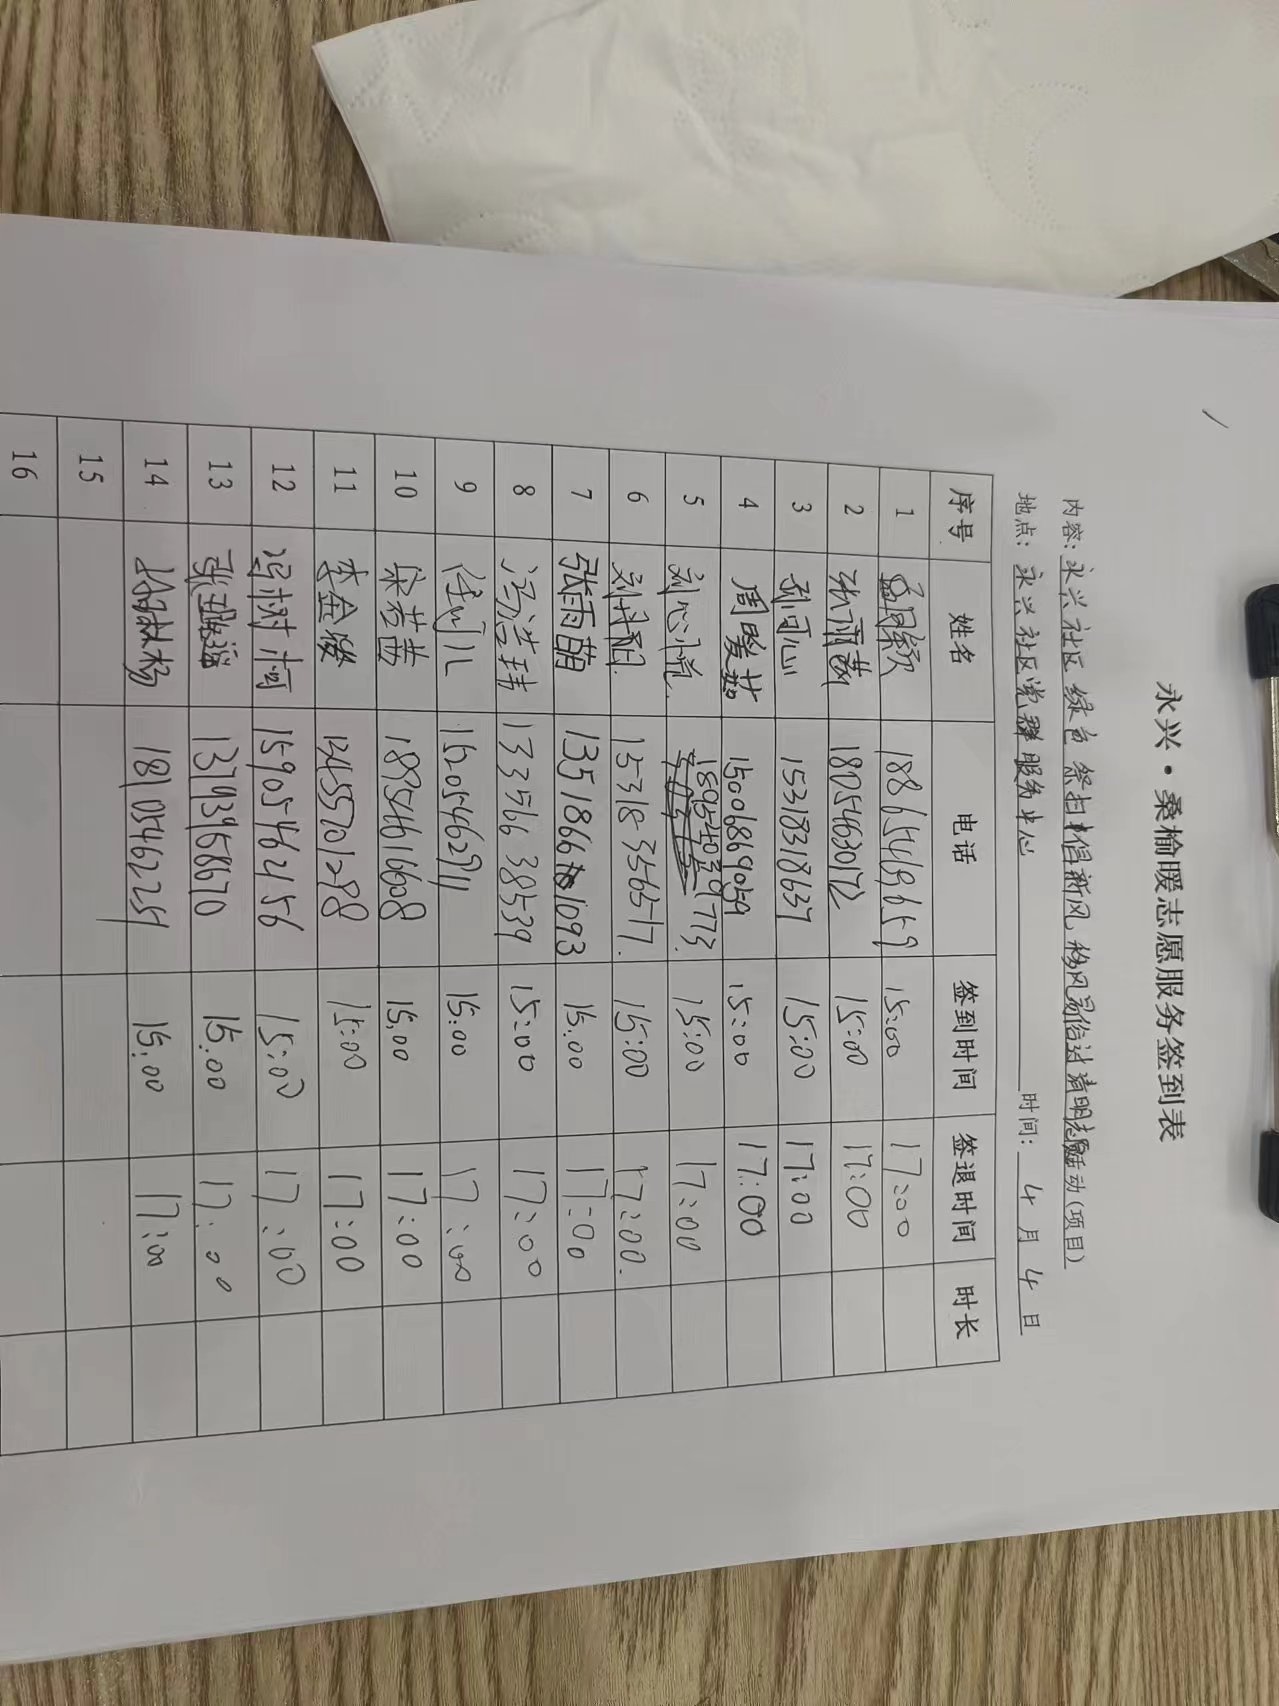 永兴·桑榆暖志愿服务签到表
内容:永兴社区绿色祭扫倡新风,移风易俗过清明志愿活动(项目)
地点:永兴社区党群服务中心 时间:4月4日
序号 姓名 电话 签到时间 签退时间 时长
1 18654619659 15:00 17:00
2 18254630172 15:00 17:00
3 刘可心 15318318637 15:00 17:00
4 周暖茹 15006869059 15:00 17:00
5 刘心悦 15:00 17:00
6 刘丹阳 15318356517 15:00 17:00
7 张雨萌 15:00 17:00
8 冯浩玮 13356638539 15:00 17:00
9 任可儿 15205462911 15:00 17:00
10 宋若茜 18754616608 15:00 17:00
11 李金骏 15:00 17:00
12 冯树柯 15905462456 15:00 17:00
13 13793958670 15:00 17:00
14 18105462251 15:00 17:00
15
16